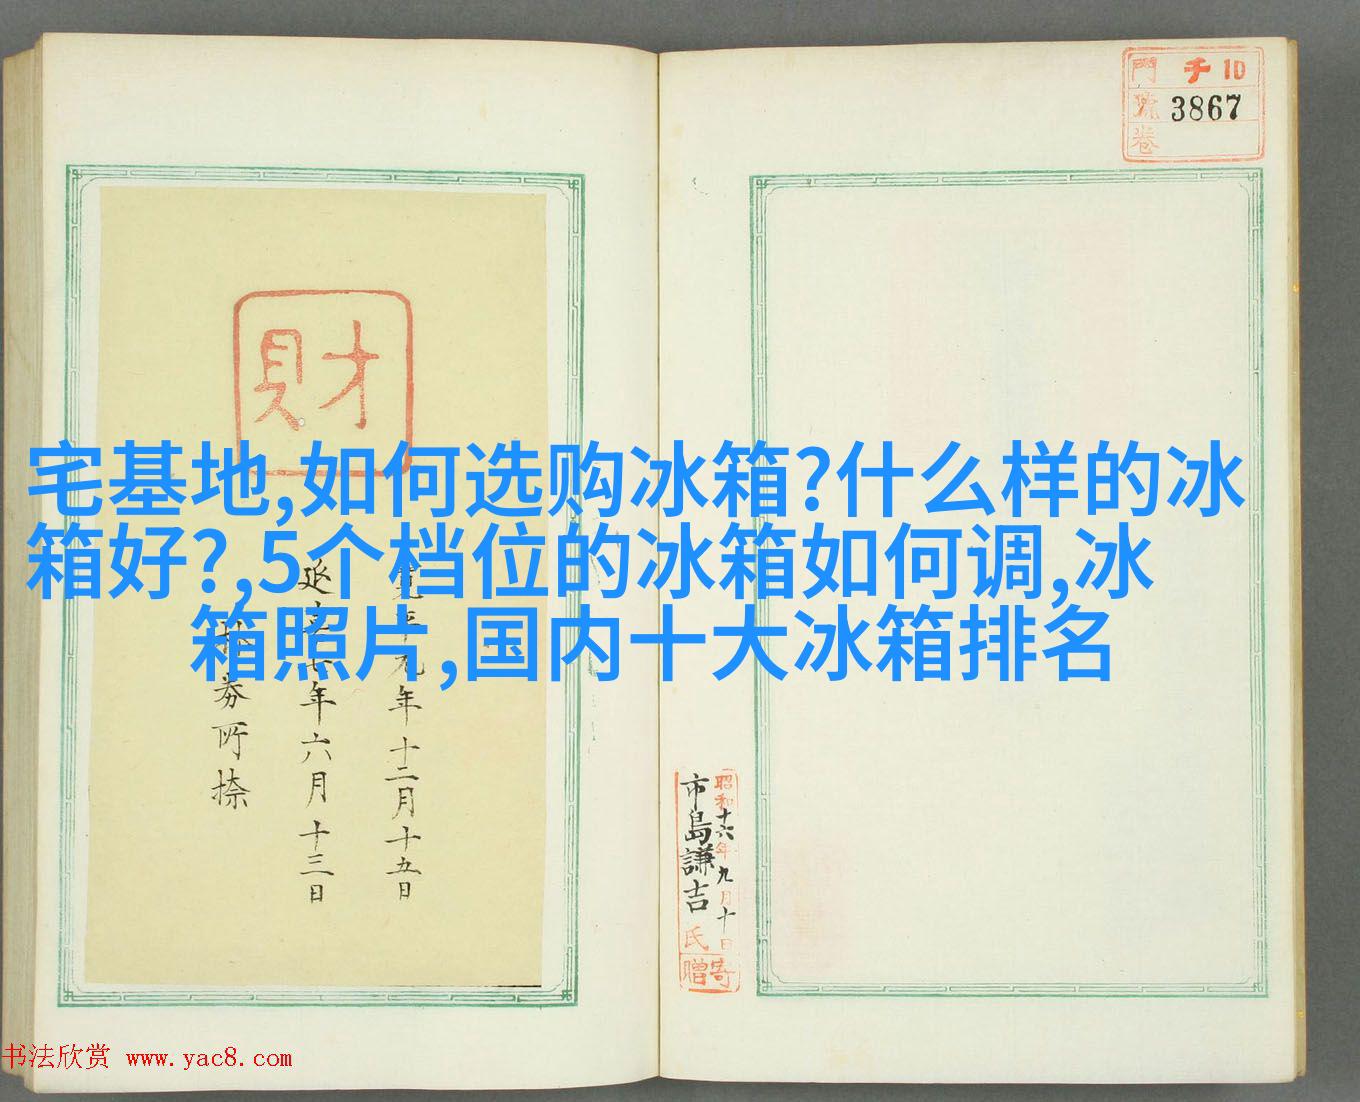 門 千10
號 3867
卷
財
宅基地,如何选购冰箱?什么样的冰
箱好?,5个档位的冰箱如何调,冰
箱照片,国内十大冰箱排名
寛平九年十二月十五日
延㐂七年六月十三日
券所捺
昭和十六年九月十日
市島謙吉氏
寄贈
书法欣赏 www.yac8.com